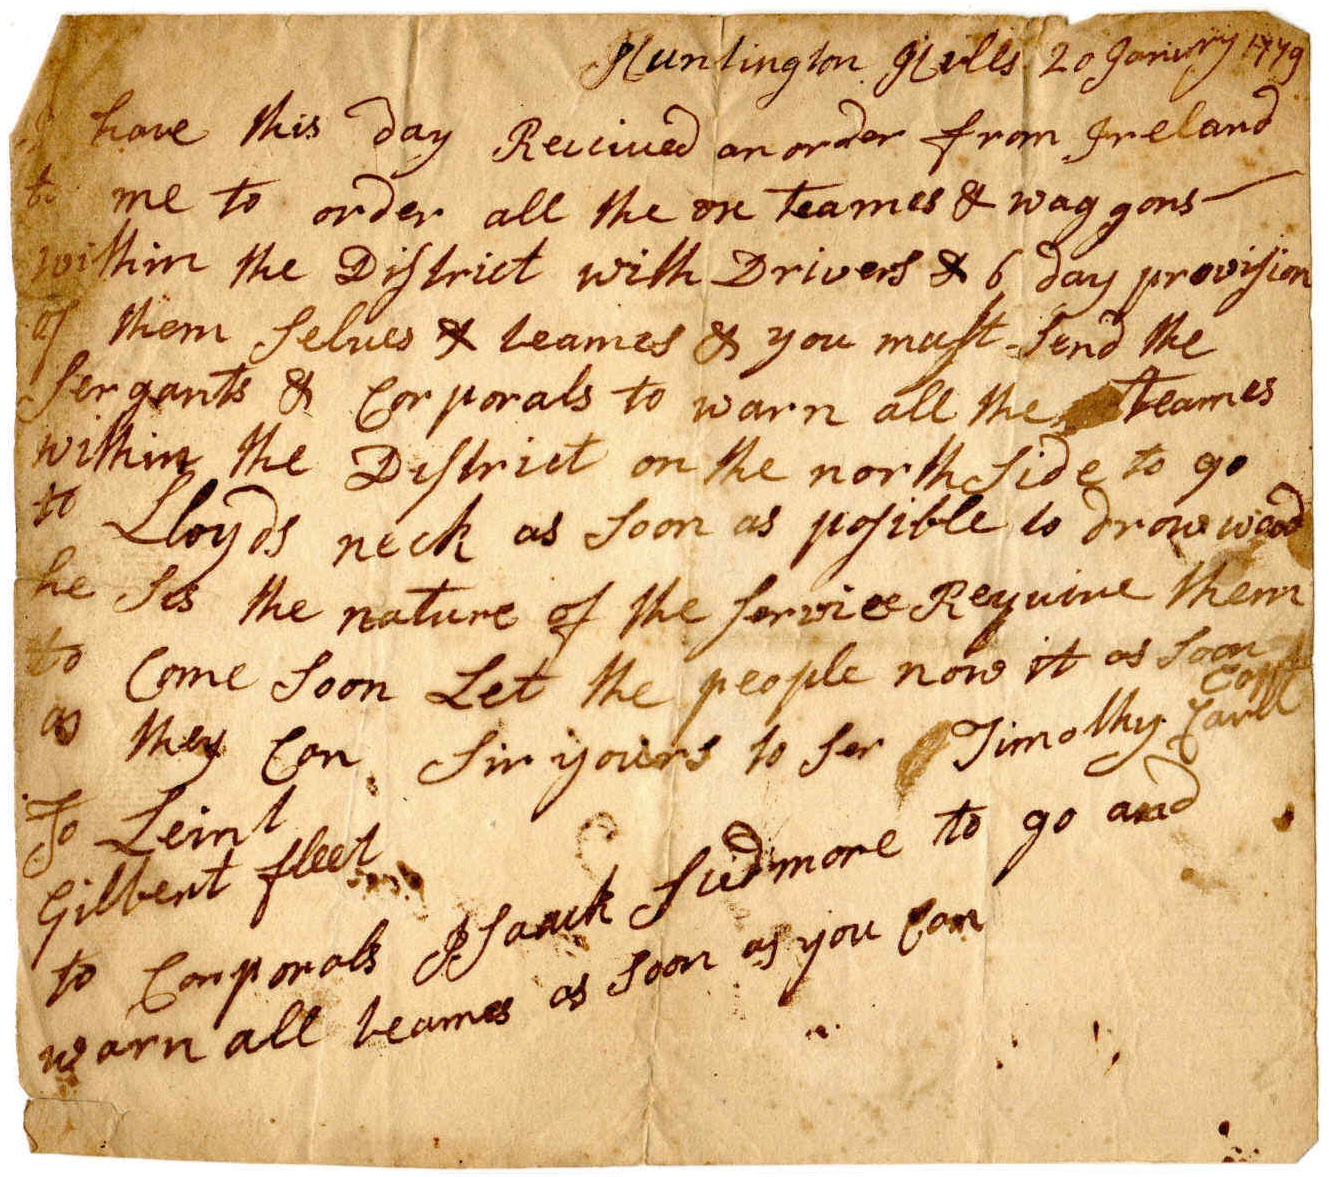 Huntington Hills 20 Janiury 1779
I have this day Reciued an order from Jreland
to me to order all the ox teames & waggons
within the District with Drivers & 6 day provision
of them selues & teames & you must send the
sergants & Corporals to warn all the teames
within the District on the north side to go
to Lloyds neck as soon as posible to drow wood
he ses the nature of the service Requiue them
to Come soon Let the people now it as soon
as they Can Sir youers to ser Timothy Carll
Capt
To Leint
Gilbert fleet
to Corporals Isaack Sudmore to go and
warn all teames as soon as you Can